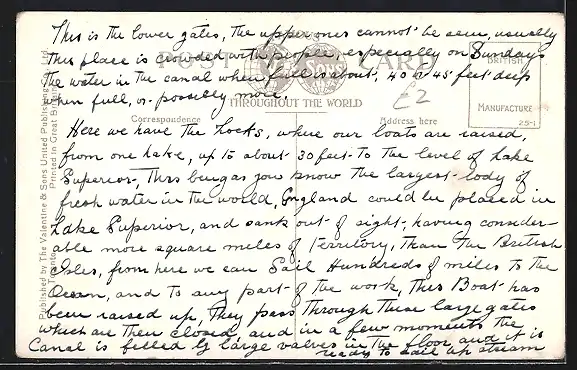 This is the lower gates, The upper ones cannot be seen, usually
this place is crowded with people, especially on Sundays
The water in the canal when full is about, 40 or 45 feet deep
when full, or possibly more.
POST CARD
SONS
THROUGHOUT THE WORLD
£2
BRITISH
MANUFACTURE
25-1
Correspondence
Address here
Published by The Valentine & Sons United Publishing Co.
Toronto
Printed in Great Britain
Here we have The Locks, where our boats are raised,
from one Lake, up to about 30 feet to The level of Lake
Superior, This being as you know the largest body of
fresh water in the world, England could be placed in
Lake Superior, and sank out of sight, having consider-
able more square miles of Territory, Than The British
Isles, from here we can Sail Hundreds of miles to the
Ocean, and To any part of the work, This Boat has
been raised up, They pass Through These large gates
which are then closed, and in a few moments The
Canal is filled by large valves in The floor and it is
ready to sail up stream